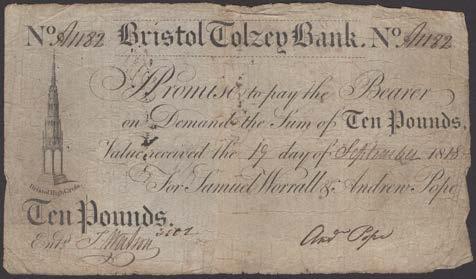 No. A1182 Bristol Tolzey Bank. No. A1182
I Promise to pay the Bearer
on Demand the Sum of Ten Pounds,
Value received the 19 day of September 1818
For Samuel Worrall & Andrew Pope
Bristol High Cross
Ten Pounds.
Entd.
And Pope